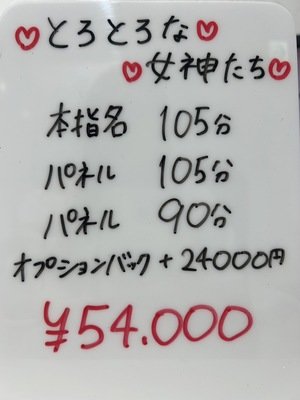 ♡とろとろな♡
♡女神たち♡
本指名 105分
パネル 105分
パネル 90分
オプションバック+24000円
¥54.000